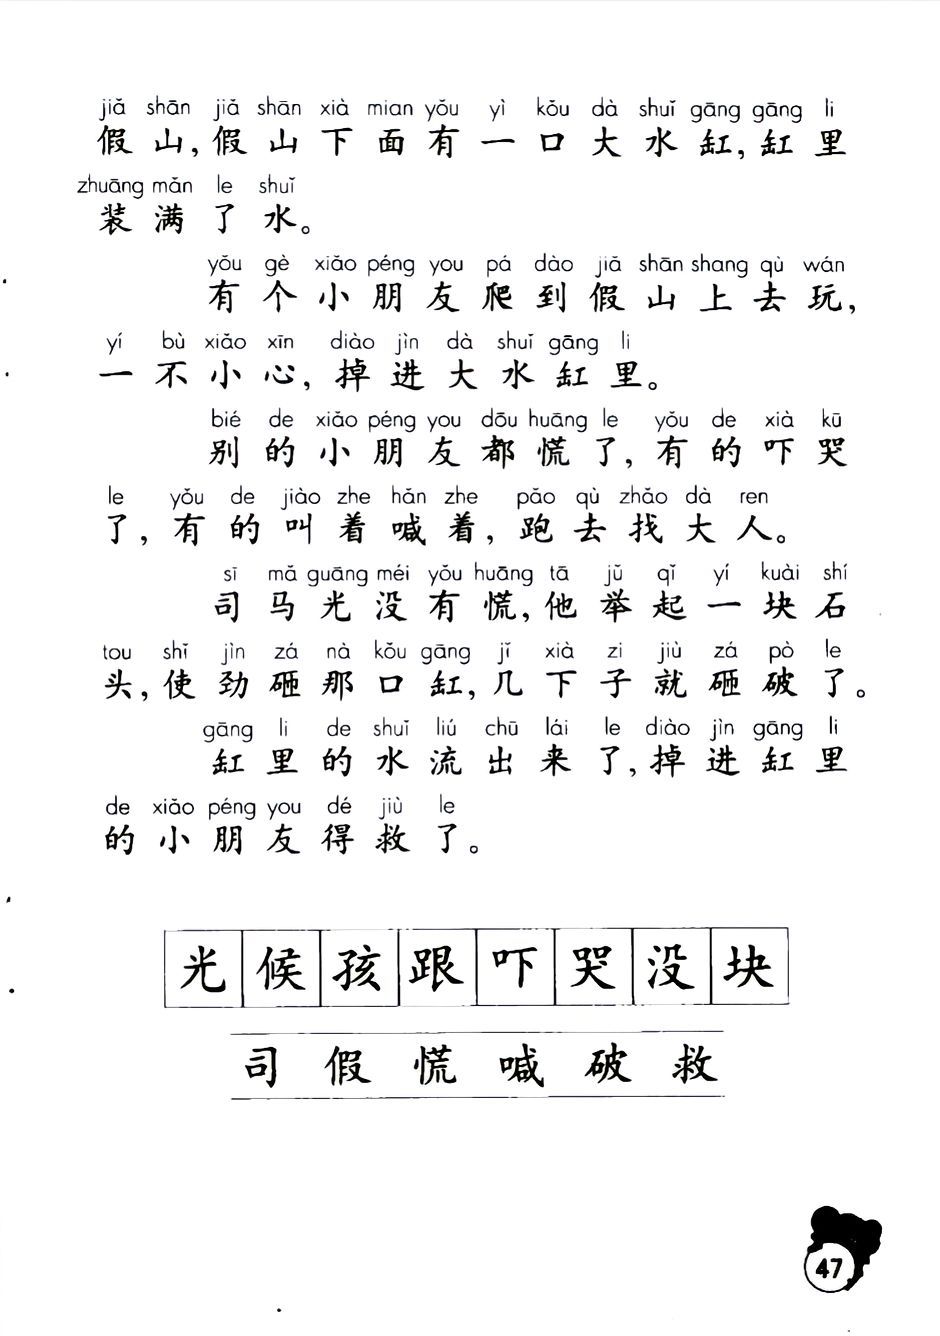 jiǎ shān jiǎ shān xià mian yǒu yì kǒu dà shuǐ gāng gāng li
假山,假山下面有一口大水缸,缸里
zhuāng mǎn le shuǐ
装满了水。
yǒu gè xiǎo péng you pá dào jiǎ shān shang qù wán
有个小朋友爬到假山上去玩,
yí bù xiǎo xīn diào jìn dà shuǐ gāng li
一不小心,掉进大水缸里。
bié de xiǎo péng you dōu huāng le yǒu de xià kū
别的小朋友都慌了,有的吓哭
le yǒu de jiào zhe hǎn zhe pǎo qù zhǎo dà ren
了,有的叫着喊着,跑去找大人。
sī mǎ guāng méi yǒu huāng tā jǔ qǐ yí kuài shí
司马光没有慌,他举起一块石
tou shǐ jìn zá nà kǒu gāng jǐ xià zi jiù zá pò le
头,使劲砸那口缸,几下子就砸破了。
gāng li de shuǐ liú chū lái le diào jìn gāng li
缸里的水流出来了,掉进缸里
de xiǎo péng you dé jiù le
的小朋友得救了。
光候孩跟吓哭没块
司假慌喊破救
47